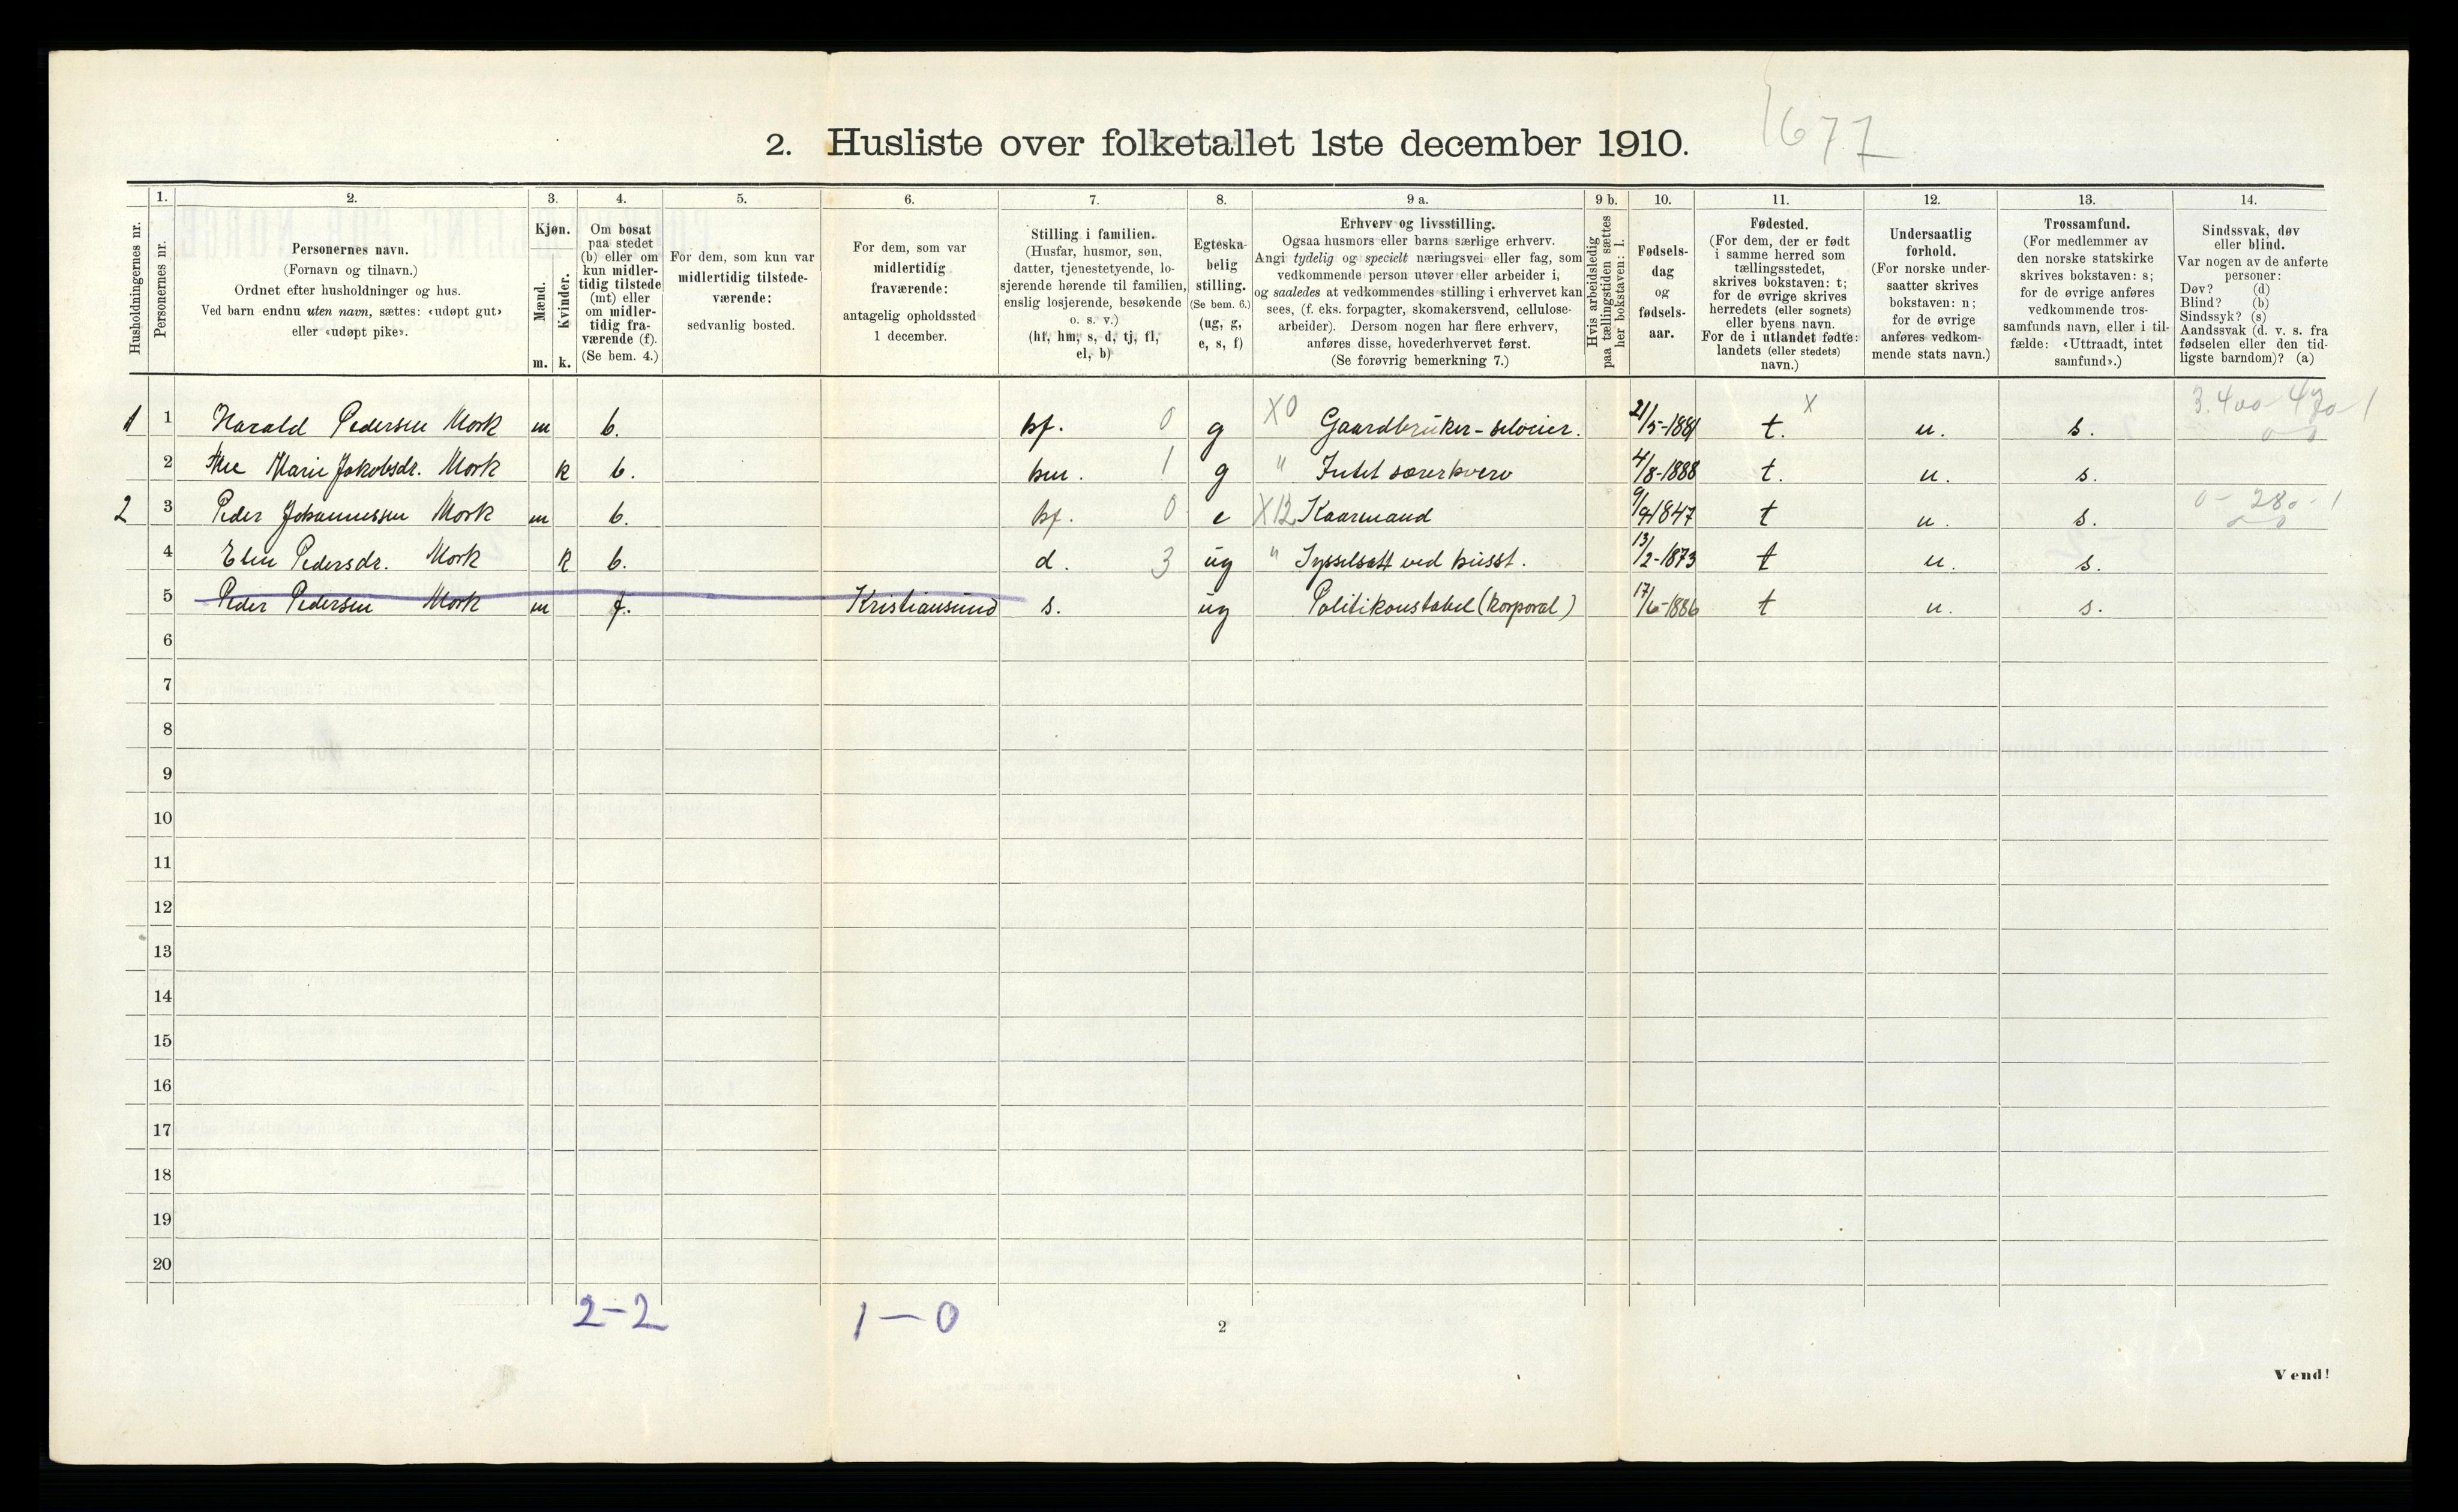 1677
2. Husliste over folketallet 1ste december 1910.
Husholdningernes nr.
1.
Personernes nr.
2.
Personernes navn.
(Fornavn og tilnavn.)
Ordnet efter husholdninger og hus.
Ved barn endnu uten navn, sættes: «udøpt gut»
eller «udøpt pike».
3.
Kjøn.
Mænd.
Kvinder.
m. k.
4.
Om bosat
paa stedet
(b) eller om
kun midler-
tidig tilstede
(mt) eller
om midler-
tidig fra-
værende (f).
(Se bem. 4.)
5.
For dem, som kun var
midlertidig tilstede-
værende:
sedvanlig bosted.
6.
For dem, som var
midlertidig
fraværende:
antagelig opholdssted
1 december.
7.
Stilling i familien.
(Husfar, husmor, søn,
datter, tjenestetyende, lo-
sjerende hørende til familien,
enslig losjerende, besøkende
o. s. v.)
(hf, hm, s, d, tj, fl,
el, b)
8.
Egteska-
belig
stilling.
(Se bem. 6.)
(ug, g,
e, s, f)
9 a.
Erhverv og livsstilling.
Ogsaa husmors eller barns særlige erhverv.
Angi tydelig og specielt næringsvei eller fag, som
vedkommende person utøver eller arbeider i,
og saaledes at vedkommendes stilling i erhvervet kan
sees, (f. eks. forpagter, skomakersvend, cellulose-
arbeider). Dersom nogen har flere erhverv,
anføres disse, hovederhvervet først.
(Se forøvrig bemerkning 7.)
9 b.
Hvis arbeidsledig
paa tællingstiden sættes
her bokstaven: l.
10.
Fødsels-
dag
og
fødsels-
aar.
11.
Fødested.
(For dem, der er født
i samme herred som
tællingsstedet,
skrives bokstaven: t;
for de øvrige skrives
herredets (eller sognets)
eller byens navn.
For de i utlandet fødte:
landets (eller stedets)
navn.)
12.
Undersaatlig
forhold.
(For norske under-
saatter skrives
bokstaven: n;
for de øvrige
anføres vedkom-
mende stats navn.)
13.
Trossamfund.
(For medlemmer av
den norske statskirke
skrives bokstaven: s;
for de øvrige anføres
vedkommende tros-
samfunds navn, eller i til-
fælde: «Uttraadt, intet
samfund».)
14.
Sindssvak, døv
eller blind.
Var nogen av de anførte
personer:
Døv? (d)
Blind? (b)
Sindssyk? (s)
Aandssvak (d. v. s. fra
fødselen eller den tid-
ligste barndom)? (a)
1 1 Harald Pedersen Mork m b. hf. 0 g X0 Gaardbruker - selveier. 21/5-1881 t. X n. s. 3.400-470-1 0-0
2 Ane Marie Jakobsdr. Mork k b. hm. 1 g " Intet særerhverv 4/8-1888 t. n. s.
2 3 Peder Johannessen Mork m b. hf. 0 e X12 Kaarmand 9/9 1847 t n. s. 0-280-1 0-0
4 Elen Pedersdr. Mork k b. d. 3 ug " Sysselsatt ved husst. 13/2-1873 t n. s.
5 Peder Pedersen Mork m f. Kristiansund s. ug Politikonstabel (korporal) 17/6-1886 t n. s.
6
7
8
9
10
11
12
13
14
15
16
17
18
19
20
2-2 1-0
2
Vend!